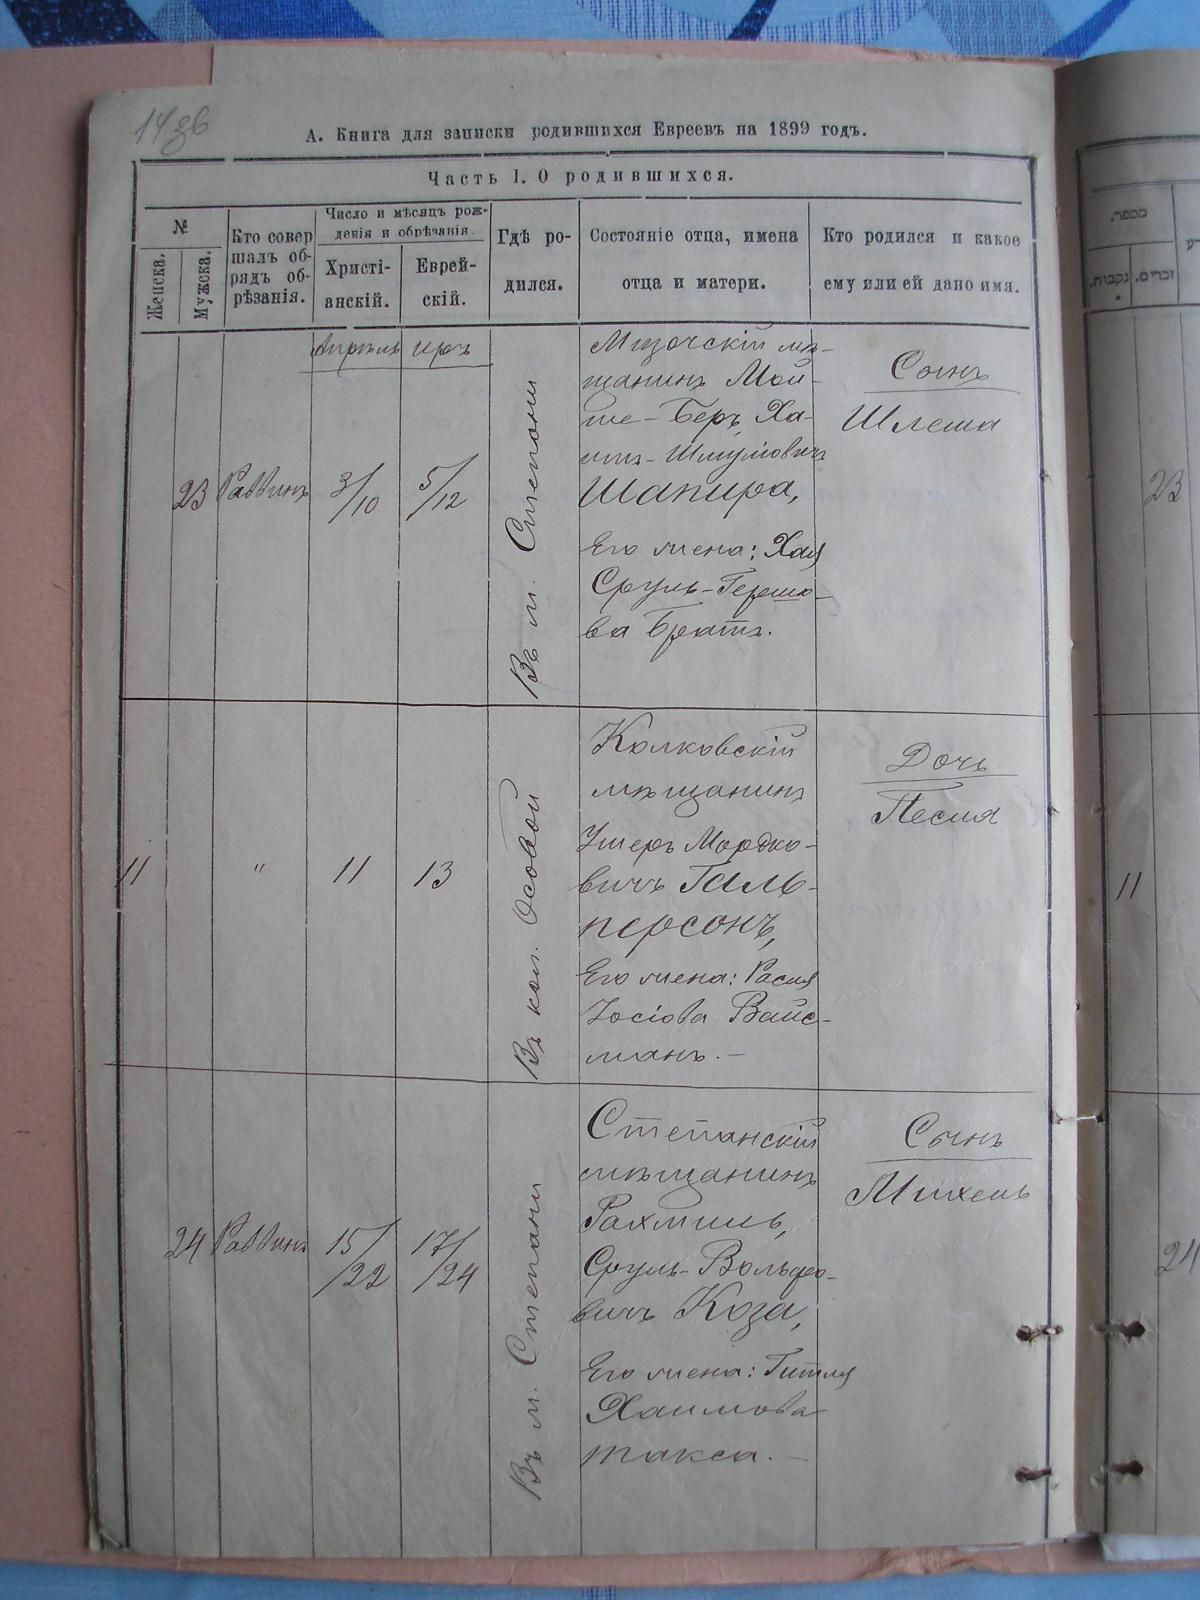 14 зв
А. Книга для записки родившихся Евреевъ на 1899 годъ.
Часть I. О родившихся.
№
Женска.
Мужска.
Кто совер
шалъ об-
рядъ об-
рѣзанія.
Число и мѣсяцъ рож-
денія и обрѣзанія.
Христі-
анскій.
Еврей-
скій.
Гдѣ ро-
дился.
Состояніе отца, имена
отца и матери.
Кто родился и какое
ему или ей дано имя.
Апрѣль
Іръ
23
Раввинъ
3/10
5/12
Въ м. Степани
Мизочскій мѣ-
щанинъ Мой-
ше-Беръ, Ха-
имъ-Шмулёвичъ
Шапира,
Его жена: Хая
Сруль-Гершко-
ва Братъ.
Сынъ
Шлёма
11
"
11
13
Въ кол. Особой
Колковскій
мѣщанинъ
Ушеръ Мордко-
вичъ Галь-
персонъ,
Его жена: Расия
Іосіова Вайс-
манъ.-
Дочь
Песия
24
Раввинъ
15/22
17/24
Въ м. Степани
Степанскій
мѣщанинъ
Рахмиль,
Сруль-Вольфо-
вичъ Коза,
Его жена: Гитля
Хаимова
Такса.-
Сынъ
Михель
מספר.
נקבות.
זכרים.
23
11
24